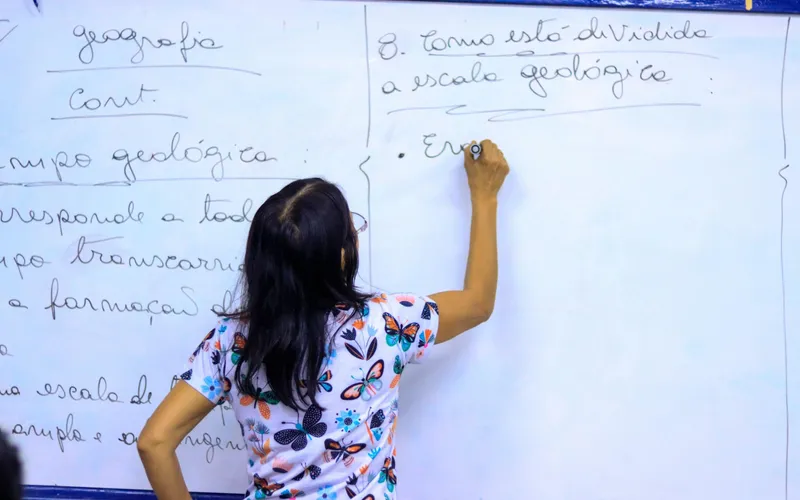 geografia
Cont.
geológica :
rresponde a tod
transcorri
a formação d
escala de
ampla e
8. Como está dividida
a escala geológica :
• Era